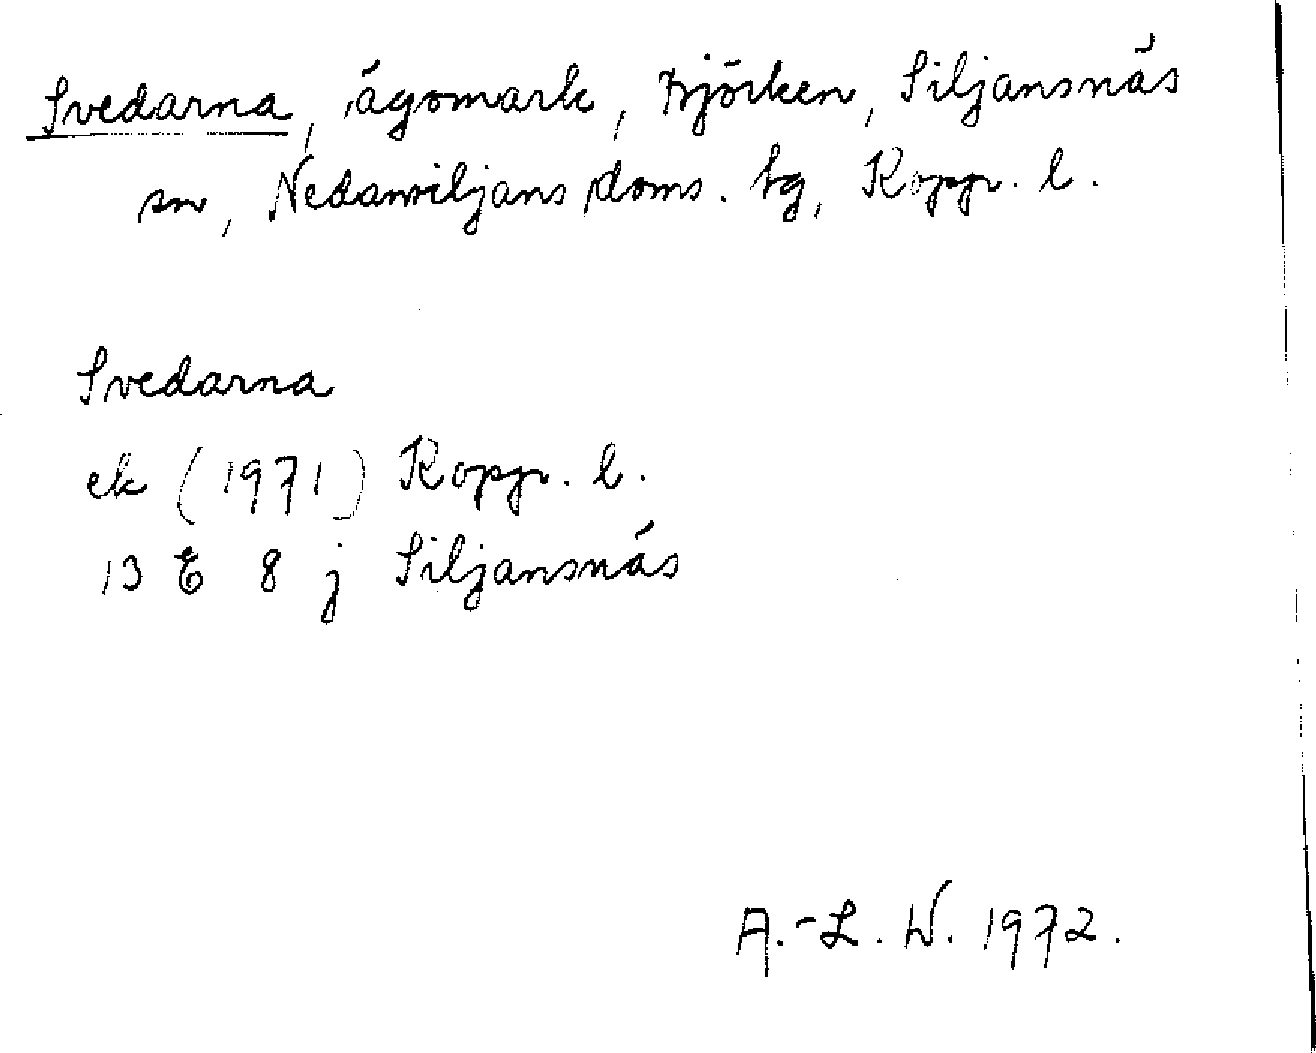 Svedarna, ägomark, Björken, Siljansnäs
sn, Nedansiljans doms. tg, Koppr. l.
Svedarna
ek (1971) Koppr. l.
13 E 8 j Siljansnäs
A.-L. W. 1972.